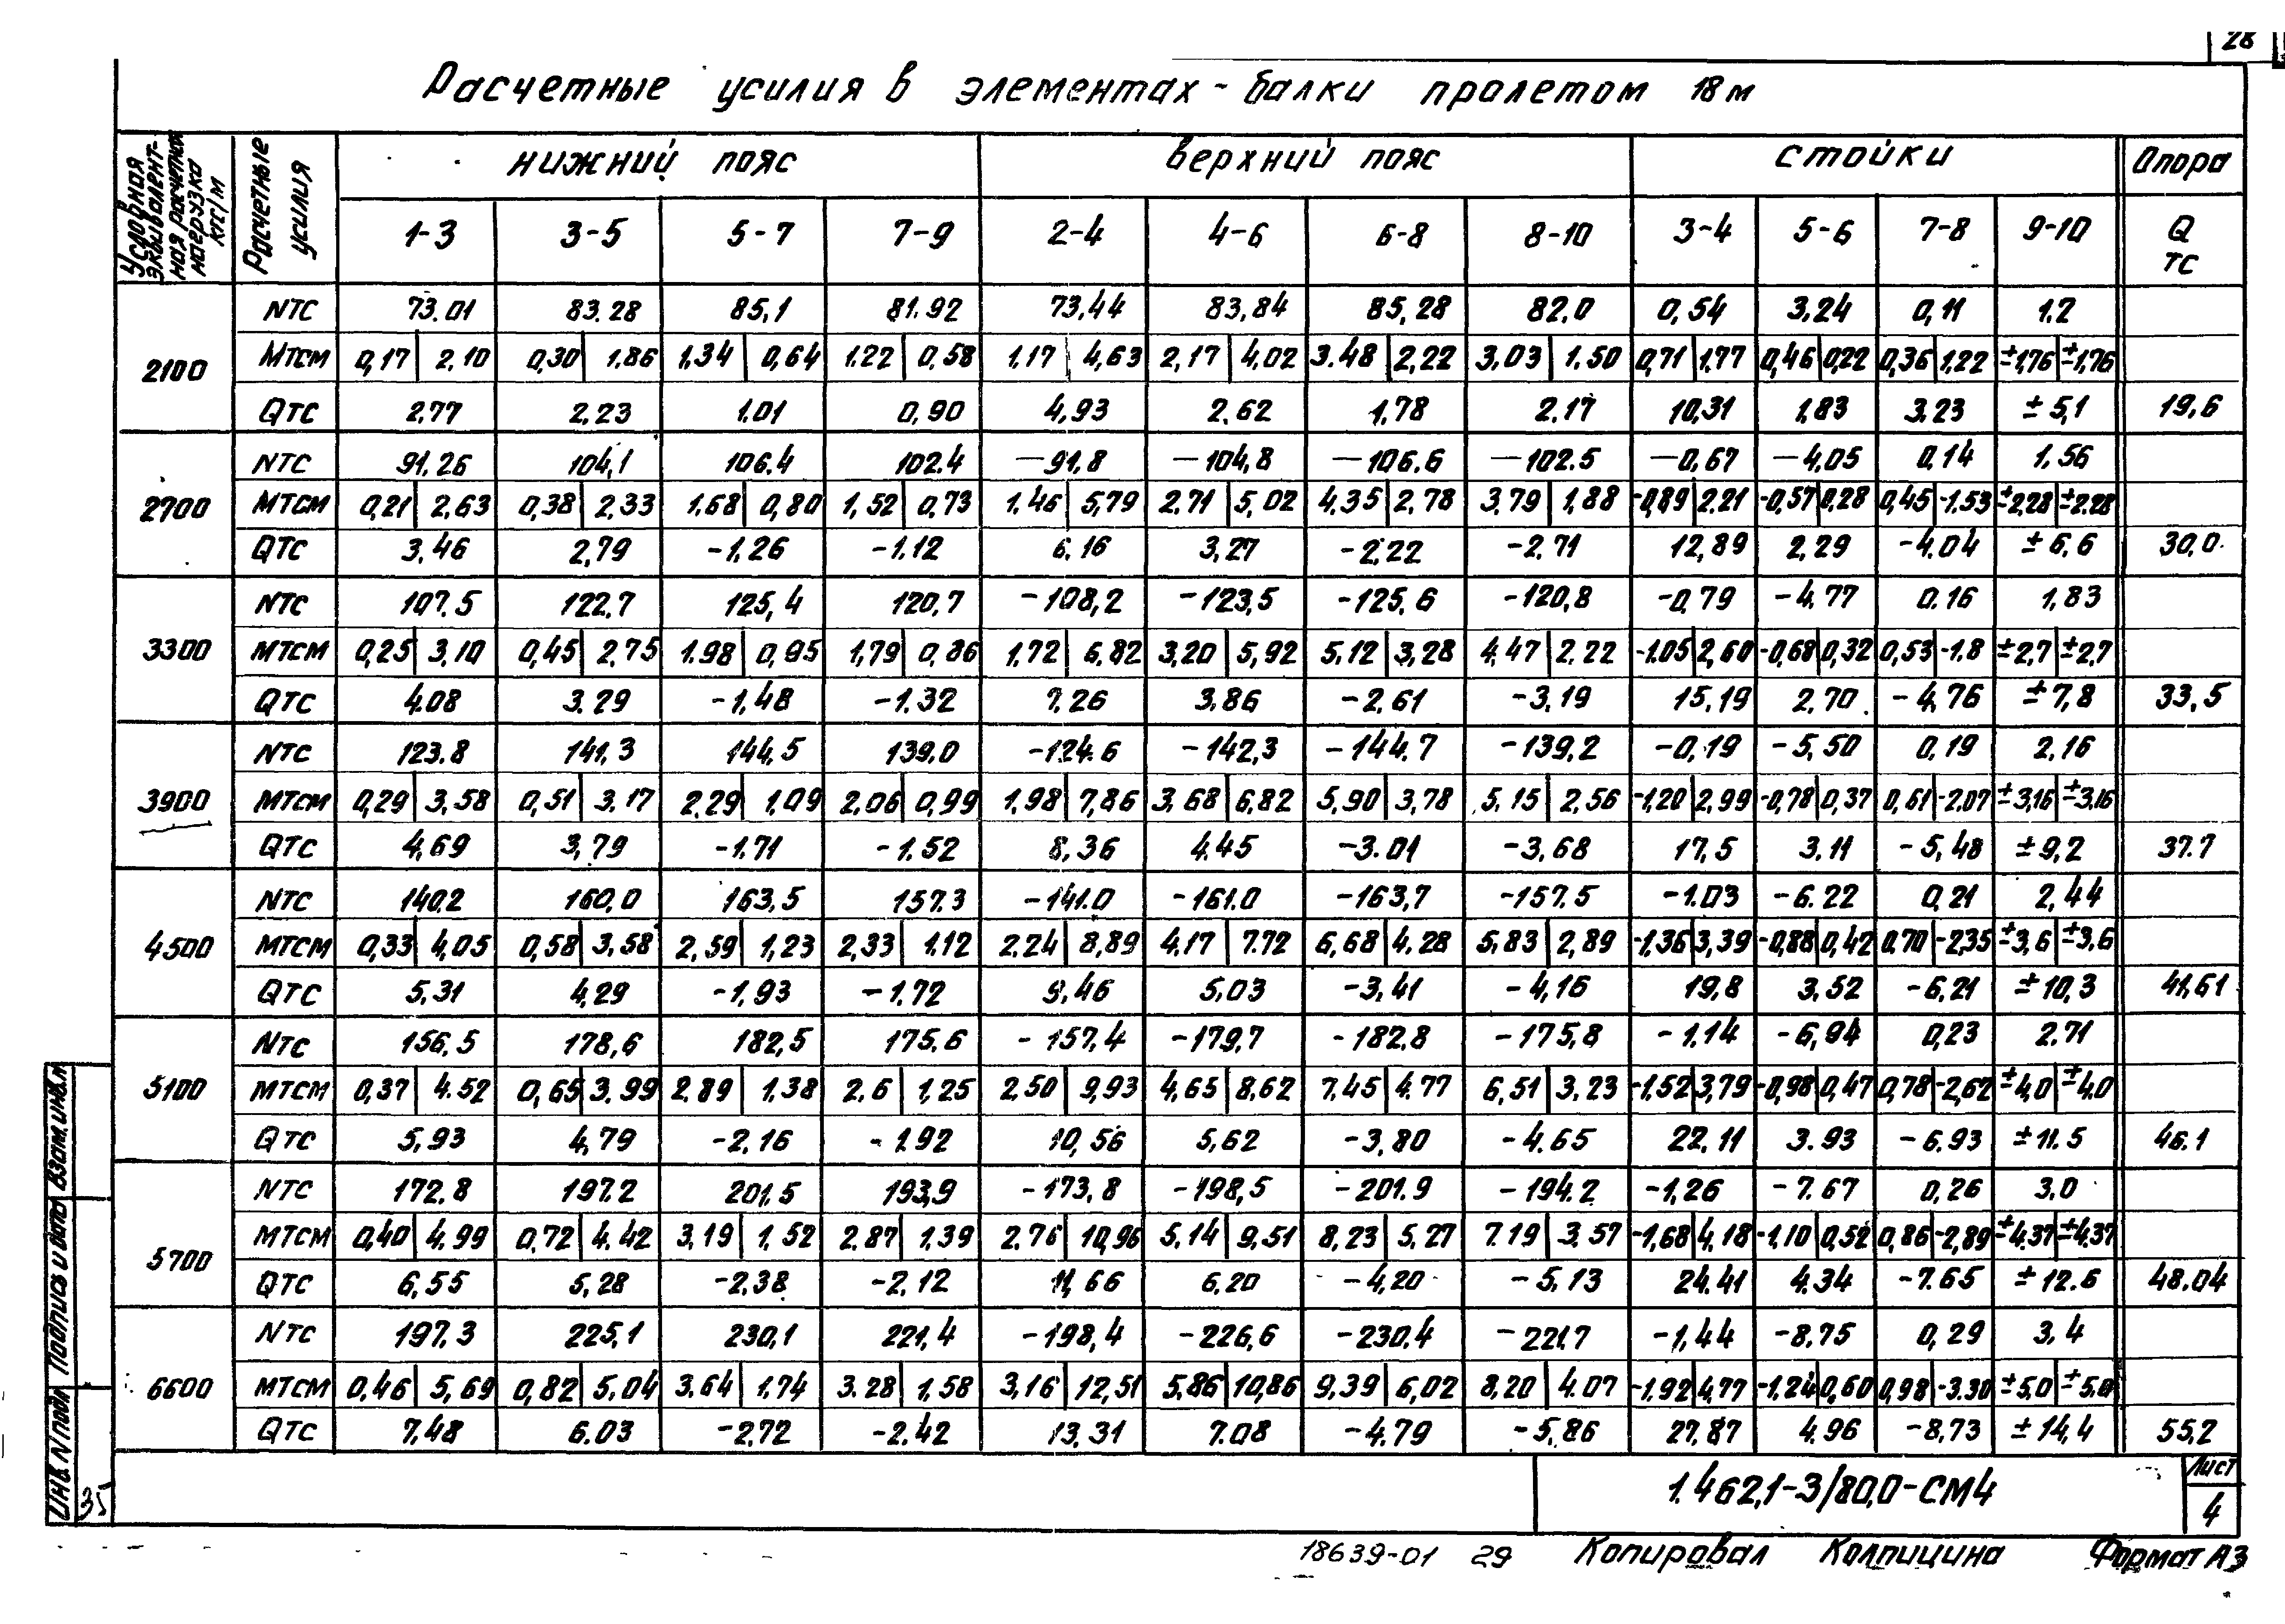 28
Расчетные усилия в элементах-балки пролетом 18 м
Условная эквивалентная расчетная нагрузка кгс/м | Расчетные усилия | нижний пояс | верхний пояс | стойки | Опора
1-3 | 3-5 | 5-7 | 7-9 | 2-4 | 4-6 | 6-8 | 8-10 | 3-4 | 5-6 | 7-8 | 9-10 | Q тс
NТС 73.01 83.28 85,1 81.92 73,44 83,84 85,28 82,0 0,54 3,24 0,11 1.2
2100 МТСМ 0,17 | 2,10 0,30 | 1.86 1,34 | 0,64 1.22 | 0,58 1,17 | 4,63 2,17 | 4,02 3.48 | 2,22 3,03 | 1.50 0,71 | 1,77 0,46 | 0,22 0,36 | 1,22 ±1,76 | ±1,76
QТС 2,77 2,23 1,01 0,90 4,93 2,62 1,78 2,17 10,31 1,83 3,23 ±5,1 19,6
NТС 91,26 104,1 106.4 102.4 -91,8 -104,8 -106.6 -102.5 -0,67 -4,05 0,14 1,56
2700 МТСМ 0,21 | 2,63 0,38 | 2,33 1,68 | 0,80 1,52 | 0,73 1,46 | 5,79 2,71 | 5,02 4,35 | 2,78 3,79 | 1,88 -0,89 | 2,21 -0,57 | 0,28 0,45 | -1.53 ±2,28 | ±2,28
QТС 3,46 2,79 -1,26 -1,12 6,16 3,27 -2,22 -2,71 12,89 2,29 -4,04 ±6,6 30,0
NТС 107.5 122,7 125,4 120,7 -108,2 -123,5 -125,6 -120,8 -0,79 -4,77 0.16 1,83
3300 МТСМ 0,25 | 3,10 0,45 | 2,75 1.98 | 0,95 1,79 | 0,86 1,72 | 6,82 3,20 | 5,92 5,12 | 3,28 4,47 | 2,22 -1.05 | 2,60 -0,68 | 0,32 0,53 | -1.8 ±2,7 | ±2,7
QТС 4.08 3.29 -1,48 -1.32 7,26 3,86 -2,61 -3,19 15,19 2,70 -4,76 ±7,8 33,5
NТС 123.8 141,3 144,5 139,0 -124.6 -142,3 -144,7 -139,2 -0,19 -5,50 0,19 2,16
3900 МТСМ 0,29 | 3,58 0,51 | 3,17 2,29 | 1,09 2,06 | 0,99 1,98 | 7,86 3,68 | 6,82 5,90 | 3,78 5,15 | 2,56 -1,20 | 2,99 -0,78 | 0,37 0,61 | -2,07 ±3,16 | ±3,16
QТС 4,69 3,79 -1,71 -1.52 8,36 4,45 -3.01 -3,68 17,5 3,11 -5,48 ±9,2 37.7
NТС 140,2 160,0 163,5 157.3 -141.0 -161.0 -163,7 -157.5 -1.03 -6.22 0,21 2,44
4500 МТСМ 0,33 | 4,05 0,58 | 3,58 2,59 | 1,23 2,33 | 1.12 2.24 | 8,89 4,17 | 7.72 6,68 | 4,28 5,83 | 2,89 -1,36 | 3,39 -0,88 | 0,42 0,70 | -2,35 ±3,6 | ±3,6
QТС 5,31 4,29 -1,93 -1.72 9,46 5,03 -3,41 -4,16 19,8 3,52 -6,21 ±10,3 41,61
NТС 156,5 178,6 182,5 175.6 -157,4 -179,7 -182.8 -175,8 -1,14 -6,94 0,23 2.71
5100 МТСМ 0,37 | 4.52 0,65 | 3.99 2.89 | 1.38 2.6 | 1,25 2.50 | 9,93 4,65 | 8,62 7.45 | 4.77 6,51 | 3.23 -1.52 | 3,79 -0,98 | 0,47 0,78 | -2,62 ±4,0 | ±4.0
QТС 5,93 4,79 -2,16 -1.92 10,56 5,62 -3,80 -4.65 22,11 3.93 -6.93 ±11.5 46.1
NТС 172.8 197.2 201.5 193,9 -173,8 -198,5 -201.9 -194.2 -1,26 -7.67 0,26 3.0
5700 МТСМ 0,40 | 4.99 0,72 | 4.42 3,19 | 1,52 2.87 | 1,39 2.76 | 10,96 5,14 | 9,51 8,23 | 5,27 7.19 | 3.57 -1,68 | 4,18 -1,10 | 0,52 0,86 | -2,89 ±4.37 | ±4.37
QТС 6,55 5,28 -2,38 -2,12 11,66 6,20 -4,20 -5,13 24.41 4.34 -7.65 ±12.6 48.04
NТС 197.3 225,1 230,1 221,4 -198,4 -226,6 -230.4 -221.7 -1,44 -8.75 0,29 3,4
6600 МТСМ 0,46 | 5,69 0,82 | 5,04 3,64 | 1,74 3.28 | 1,58 3,16 | 12,51 5,86 | 10,86 9,39 | 6,02 8,20 | 4.07 -1.92 | 4,77 -1.24 | 0,60 0,98 | -3.30 ±5,0 | ±5.0
QТС 7.48 6.03 -2,72 -2.42 13,31 7.08 -4.79 -5,86 27,87 4.96 -8,73 ±14,4 55,2
ИНВ. N подл. Подпись и дата Взам. инв. N
35
1.462,1-3/80,0-СМ4
Лист
4
18639-01 29 Копировал Колпицина Формат А3